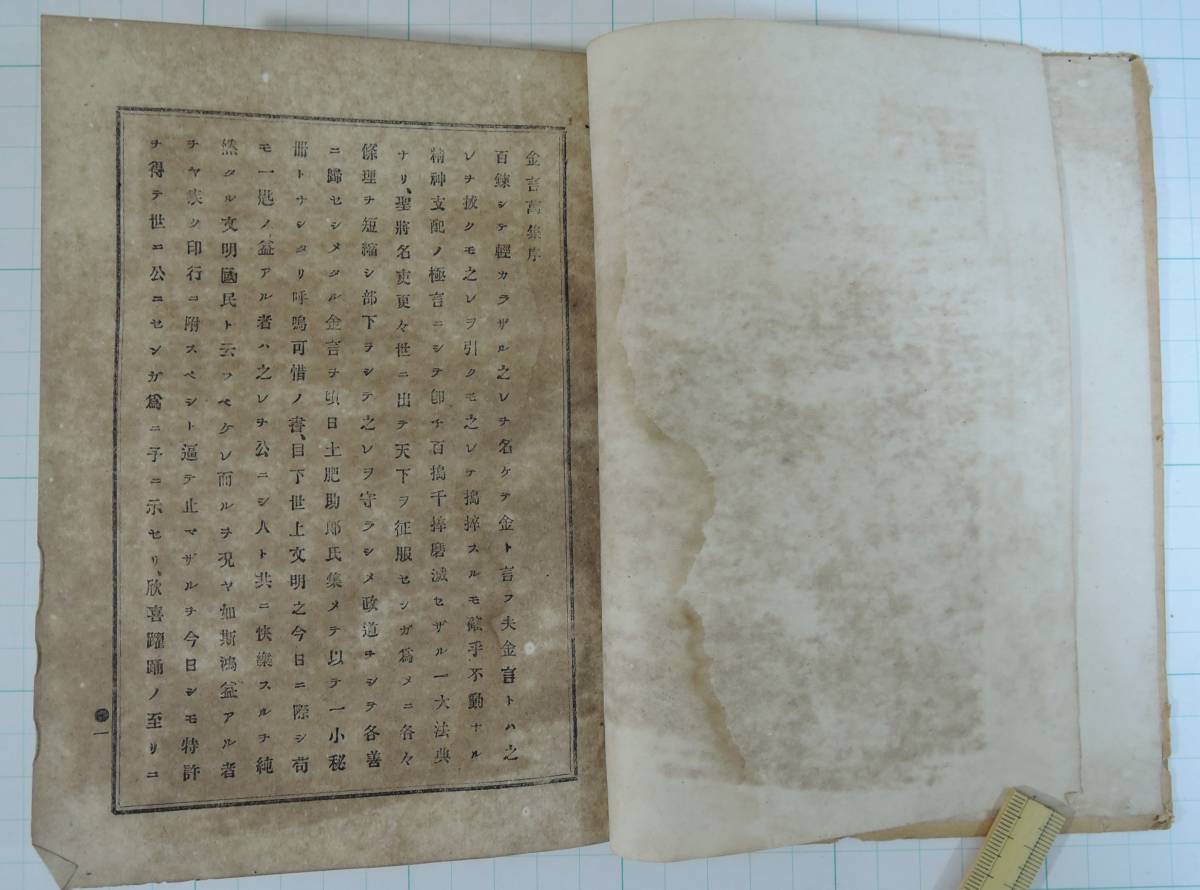 金言萬集序
百錬シテ輕カラザル之レヲ名ケテ金ト言フ夫金言トハ之
レヲ拔クモ之レヲ引クモ之レヲ搗摔スルモ確乎不動ナル
精神支配ノ極言ニシテ卽チ百搗千摔磨滅セザル一大法典
ナリ、聖將名吏更々世ニ出テ天下ヲ征服センガ爲メニ各々
條理ヲ短縮シ部下ヲシテ之レヲ守ラシメ政道ヲシテ各善
ニ歸セシメタル金言ヲ頃日土肥助郎氏集メテ以テ一小秘
册トナシタリ呼鳴可惜ノ書、目下世上文明之今日ニ際シ苟
モ一匙ノ益アル者ハ之レヲ公ニシ人ト共ニ快樂スルヲ純
然タル文明國民ト云フベケレ而ルヲ况ヤ如斯鴻益アル者
ヲヤ疾ク印行ニ附スベシト逼テ止マザルヲ今日シモ特許
ヲ得テ世ニ公ニセンガ爲ニ予ニ示セリ、欣喜躍踊ノ至リニ
一